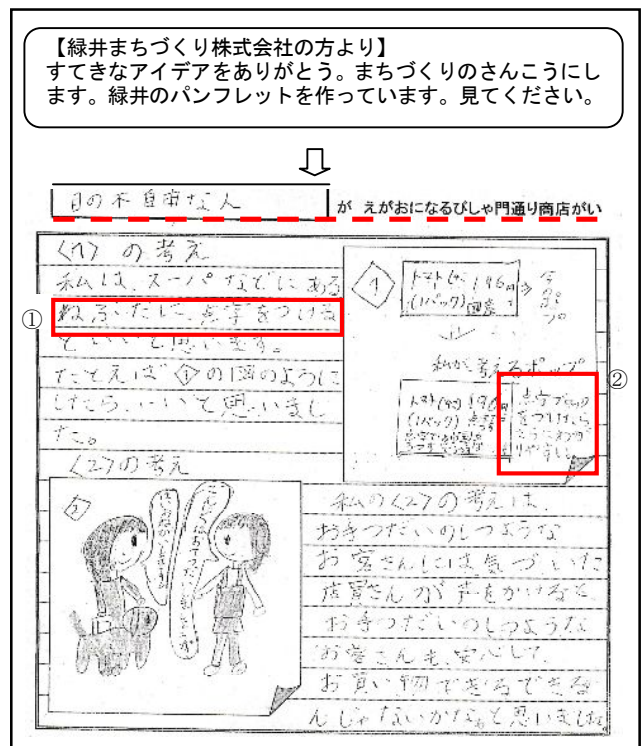 【緑井まちづくり株式会社の方より】
すてきなアイデアをありがとう。まちづくりのさんこうにし
ます。緑井のパンフレットを作っています。見てください。
目の不自由な人
が えがおになるびしゃ門通り商店がい
〈1〉の考え
私は、スーパなどにある
①
ねふだに、点字をつける
といいと思います。
たとえば①の図のように
したら、いいと思いまし
た。
①
トマト 196円
(1パック) 国産
今のポップ
私が考えるポップ
②
トマト 196円
(1パック)
点字ブロック
をつけたら
〈2〉の考え
②
私の〈2〉の考えは、
お手つだいのひつような
お客さんには気づいた
店員さんが声をかけると、
お手つだいのひつような
お客さんも、安心して、
お買い物できるできる
んじゃないかな。と思いました